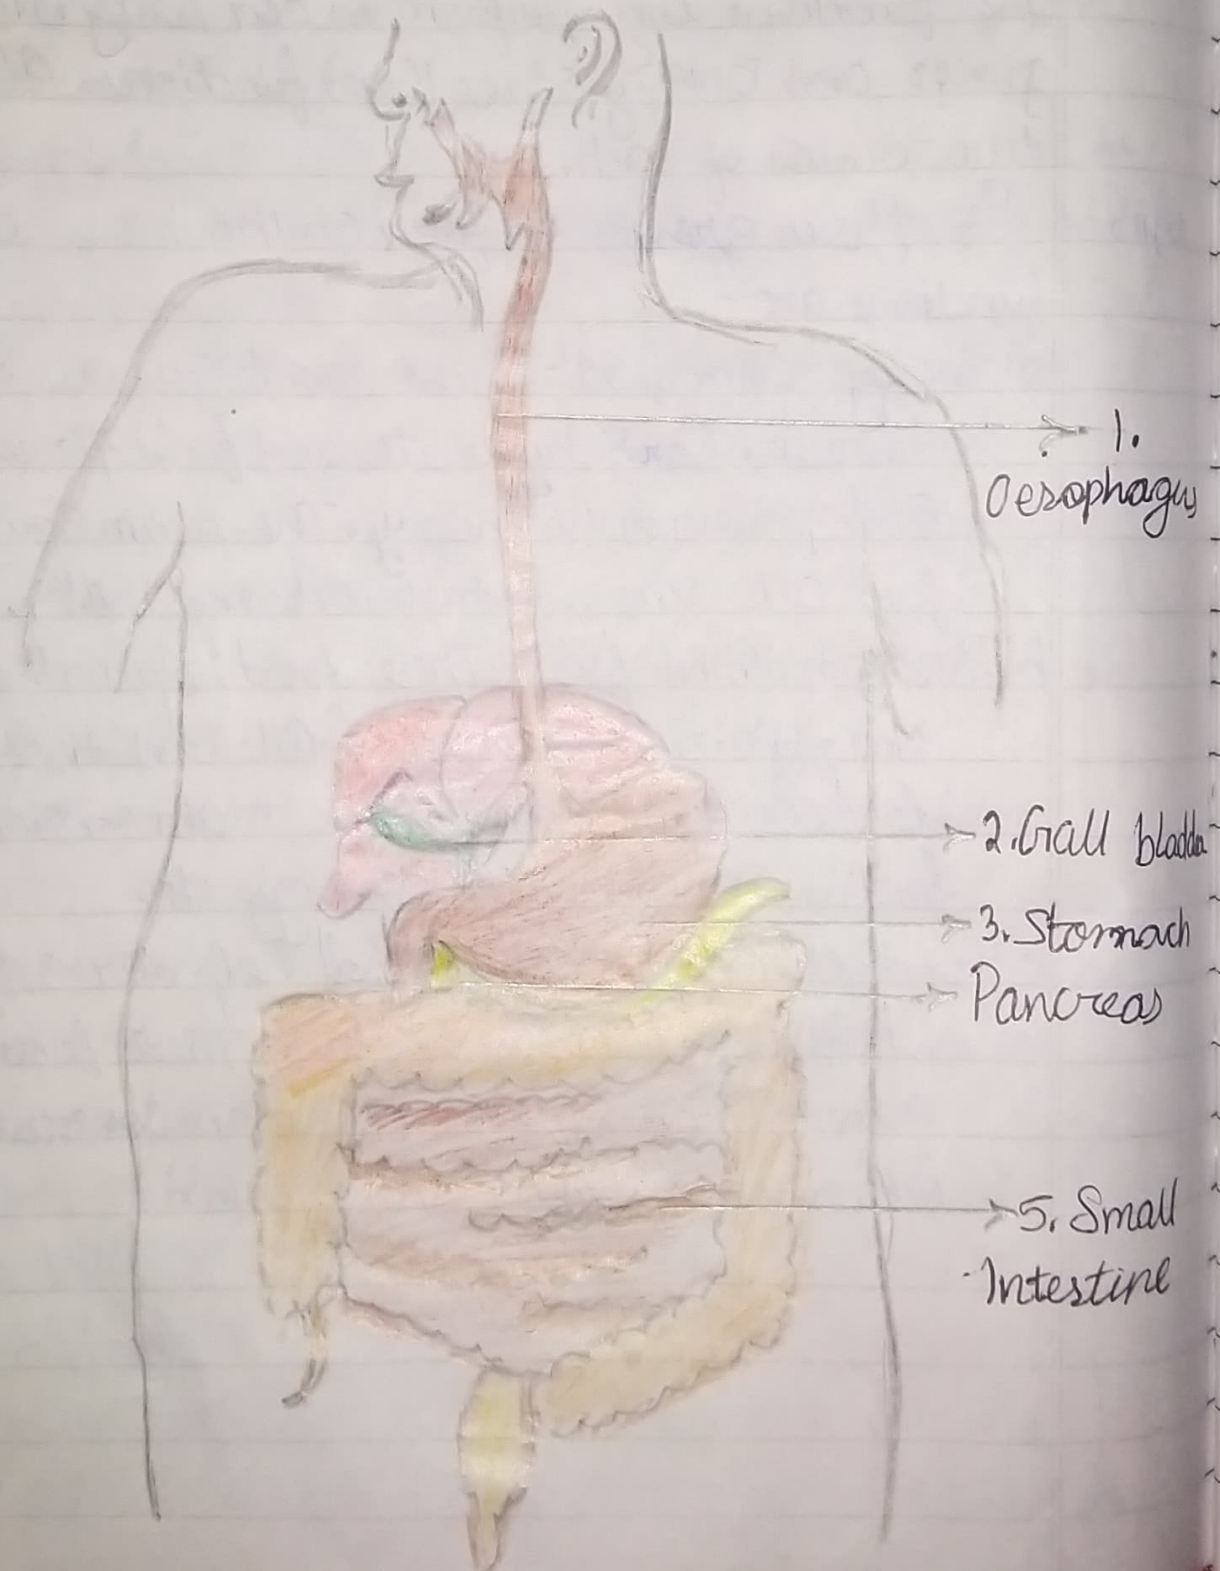 1.
Oesophagus
2. Gall bladder
3. Stomach
Pancreas
5. Small
Intestine